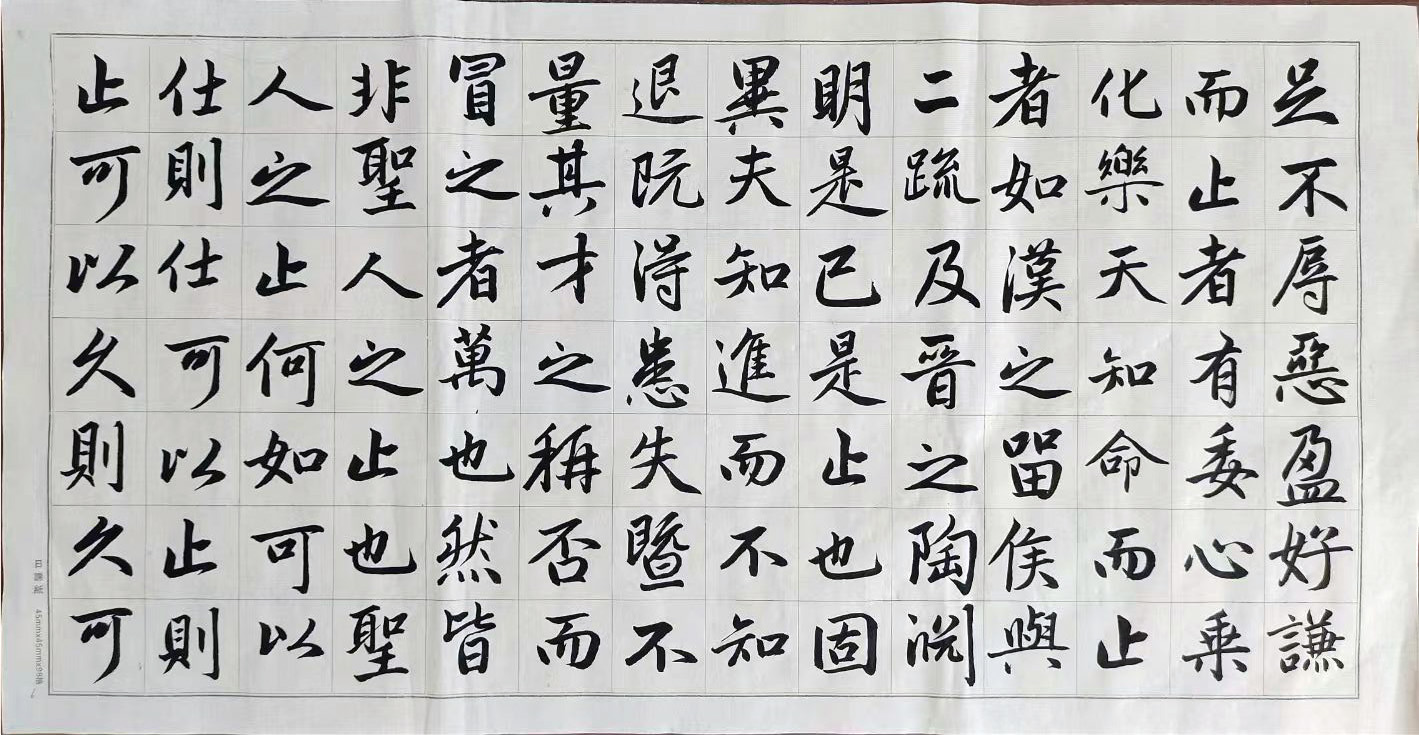 足不辱惡盈好謙
而止者有委心乘
化樂天知命而止
者如漢之畱侯與
二疏及晉之陶淵
明是已是止也固
異夫知進而不知
退既得患失暨不
量其才之稱否而
冒之者萬也然皆
非聖人之止也聖
人之止何如可以
仕則仕可以止則
止可以久則久可
日課紙 45mmx45mmx98格